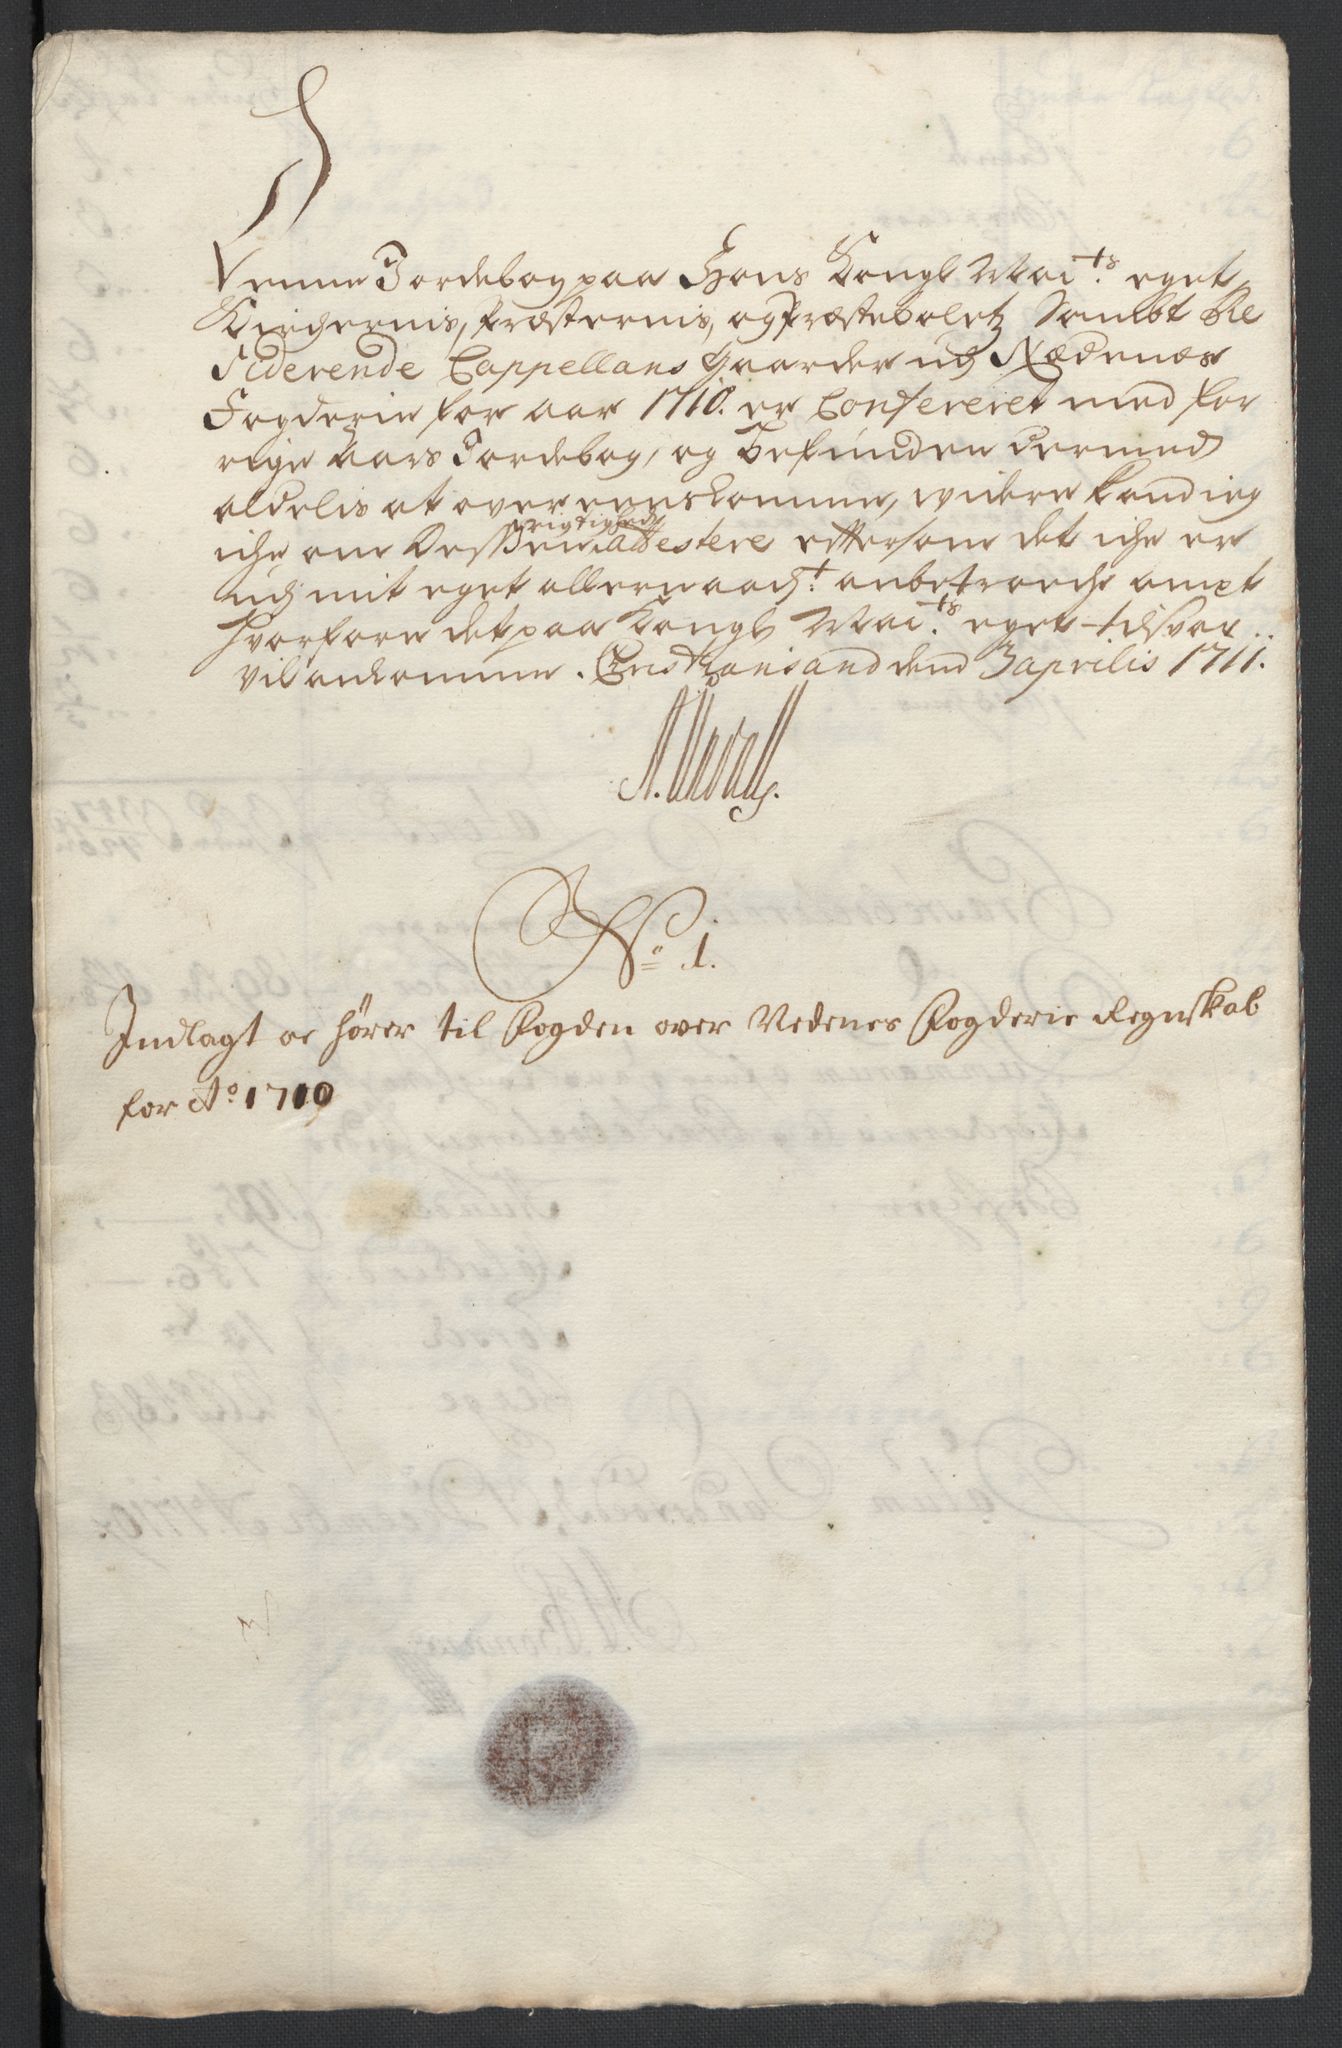 Denne Jordebog paa Hans Kongl Mai:ts eget,
Kircķernis, Præsternis, og Præstebolets Sambt Re
siderende Cappellans gaarder udj Nædenæs
Fogderie for aar 1710. er Confereret med for
rige aars Jordebog, og befunden dermed
aldelis at overeenskomme, widere kand ieg
iche om dessen rigtighed attestere eftersom det iche er
udj mit eget allernaad:t anbetroede ampt
hvorfore det paa Kongl Mai:ts eget tilsvar
vil ankomme. Christiansand dend 3 aprilis 1711.
No 1.
Indlagt oc hører til Fogden over Nedenes Fogderie Regnskab
for Ao 1710